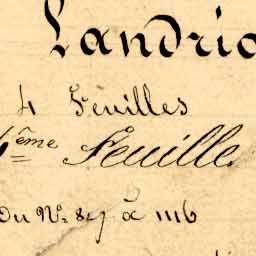 Landrio
4 Feuilles
4ème Feuille
Du Nº 827 à 1116